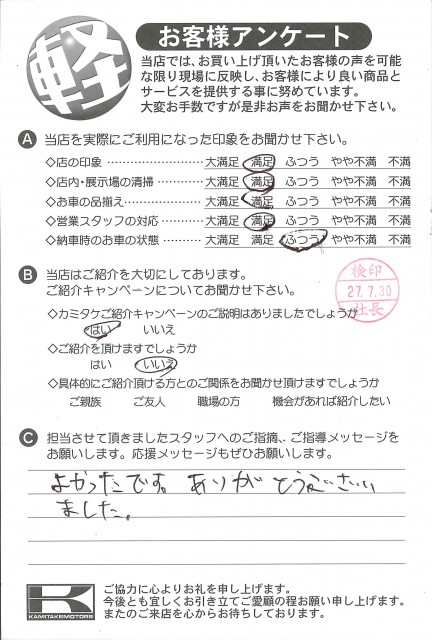 軽
お客様アンケート
当店では、お買い上げ頂いたお客様の声を可能
な限り現場に反映し、お客様により良い商品と
サービスを提供する事に努めています。
大変お手数ですが是非お声をお聞かせ下さい。
A 当店を実際にご利用になった印象をお聞かせ下さい。
◇店の印象 ………………… 大満足 満足 ふつう やや不満 不満
◇店内・展示場の清掃 ………… 大満足 満足 ふつう やや不満 不満
◇お車の品揃え ……………… 大満足 満足 ふつう やや不満 不満
◇営業スタッフの対応 ………… 大満足 満足 ふつう やや不満 不満
◇納車時のお車の状態 ………… 大満足 満足 ふつう やや不満 不満
B 当店はご紹介を大切にしております。
ご紹介キャンペーンについてお聞かせ下さい。
検印
27.7.30
社長
◇カミタケご紹介キャンペーンのご説明はありましたでしょうか
はい いいえ
◇ご紹介を頂けますでしょうか
はい いいえ
◇具体的にご紹介頂ける方とのご関係をお聞かせ頂けますでしょうか
ご親族 ご友人 職場の方 機会があれば紹介したい
C 担当させて頂きましたスタッフへのご指摘、ご指導メッセージを
お願いします。応援メッセージもぜひお願いします。
よかったです。ありがとうございい
ました。
K
KAMITAKEMOTORS
ご協力に心よりお礼を申し上げます。
今後とも宜しくお引き立てご愛顧の程お願い申し上げます。
またのご来店を心からお待ちしております。